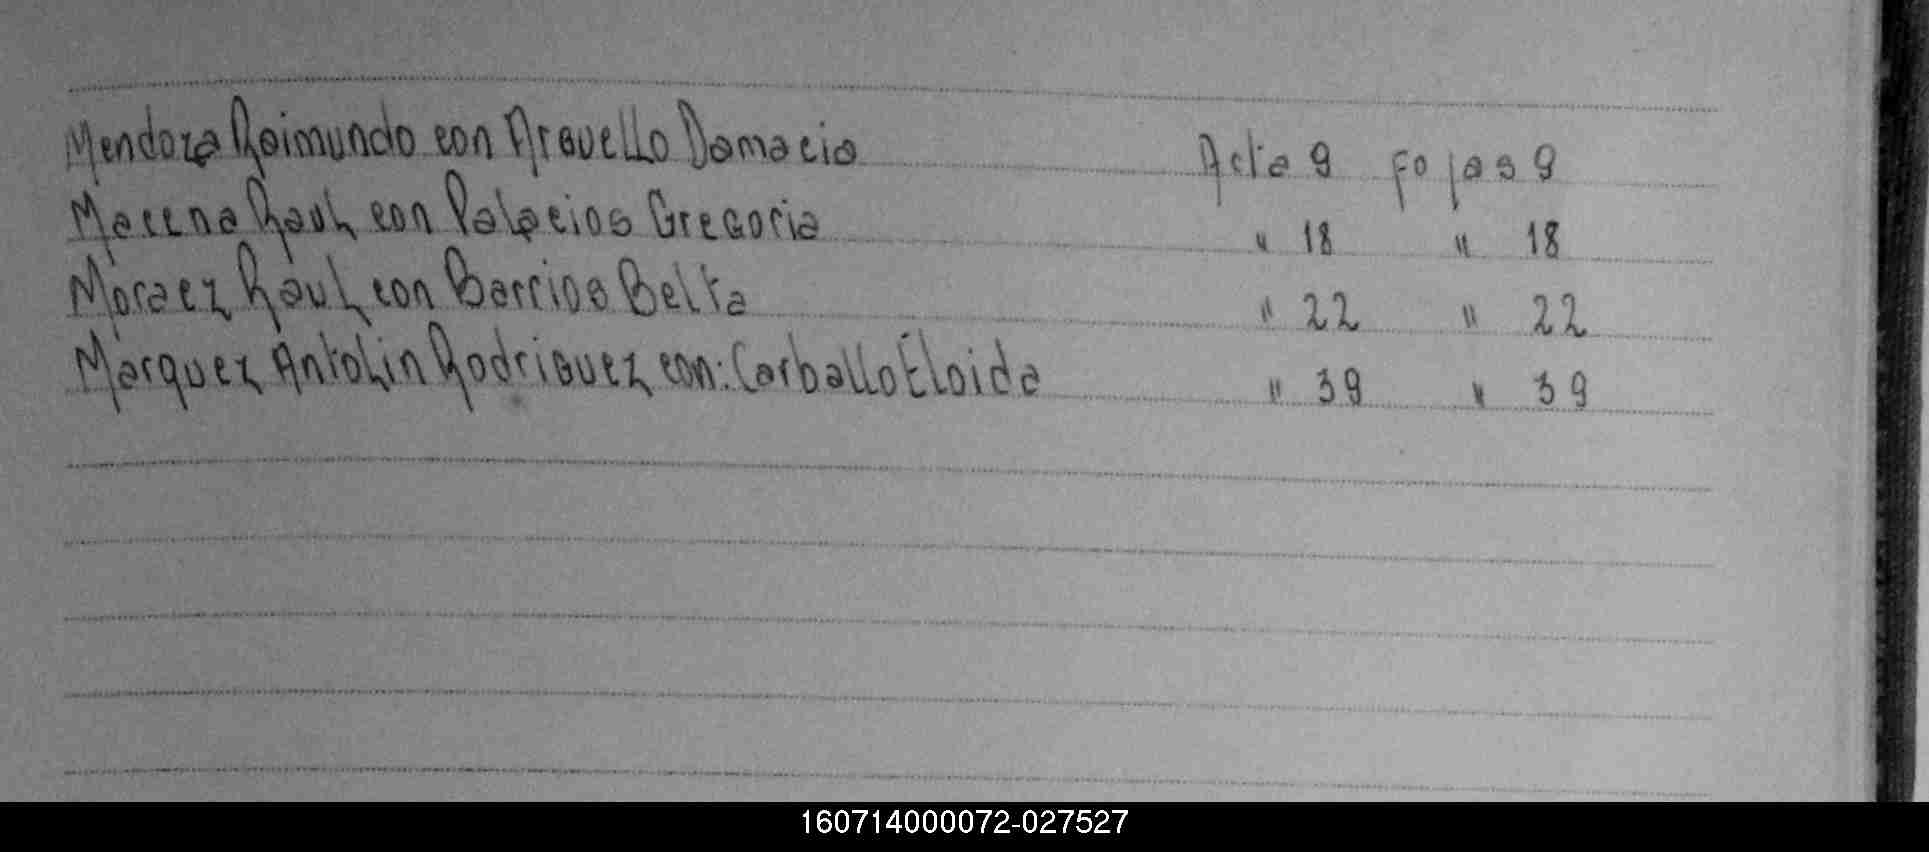 Mendoza Raimundo con Aravello Damacia Acta 9 fojas 9
Macena Raul con Palacios Gregoria " 18 " 18
Moraez Raul con Barrios Belta " 22 " 22
Marquez Antolin Rodriguez con: Carballo Eloida " 39 " 39
160714000072-027527